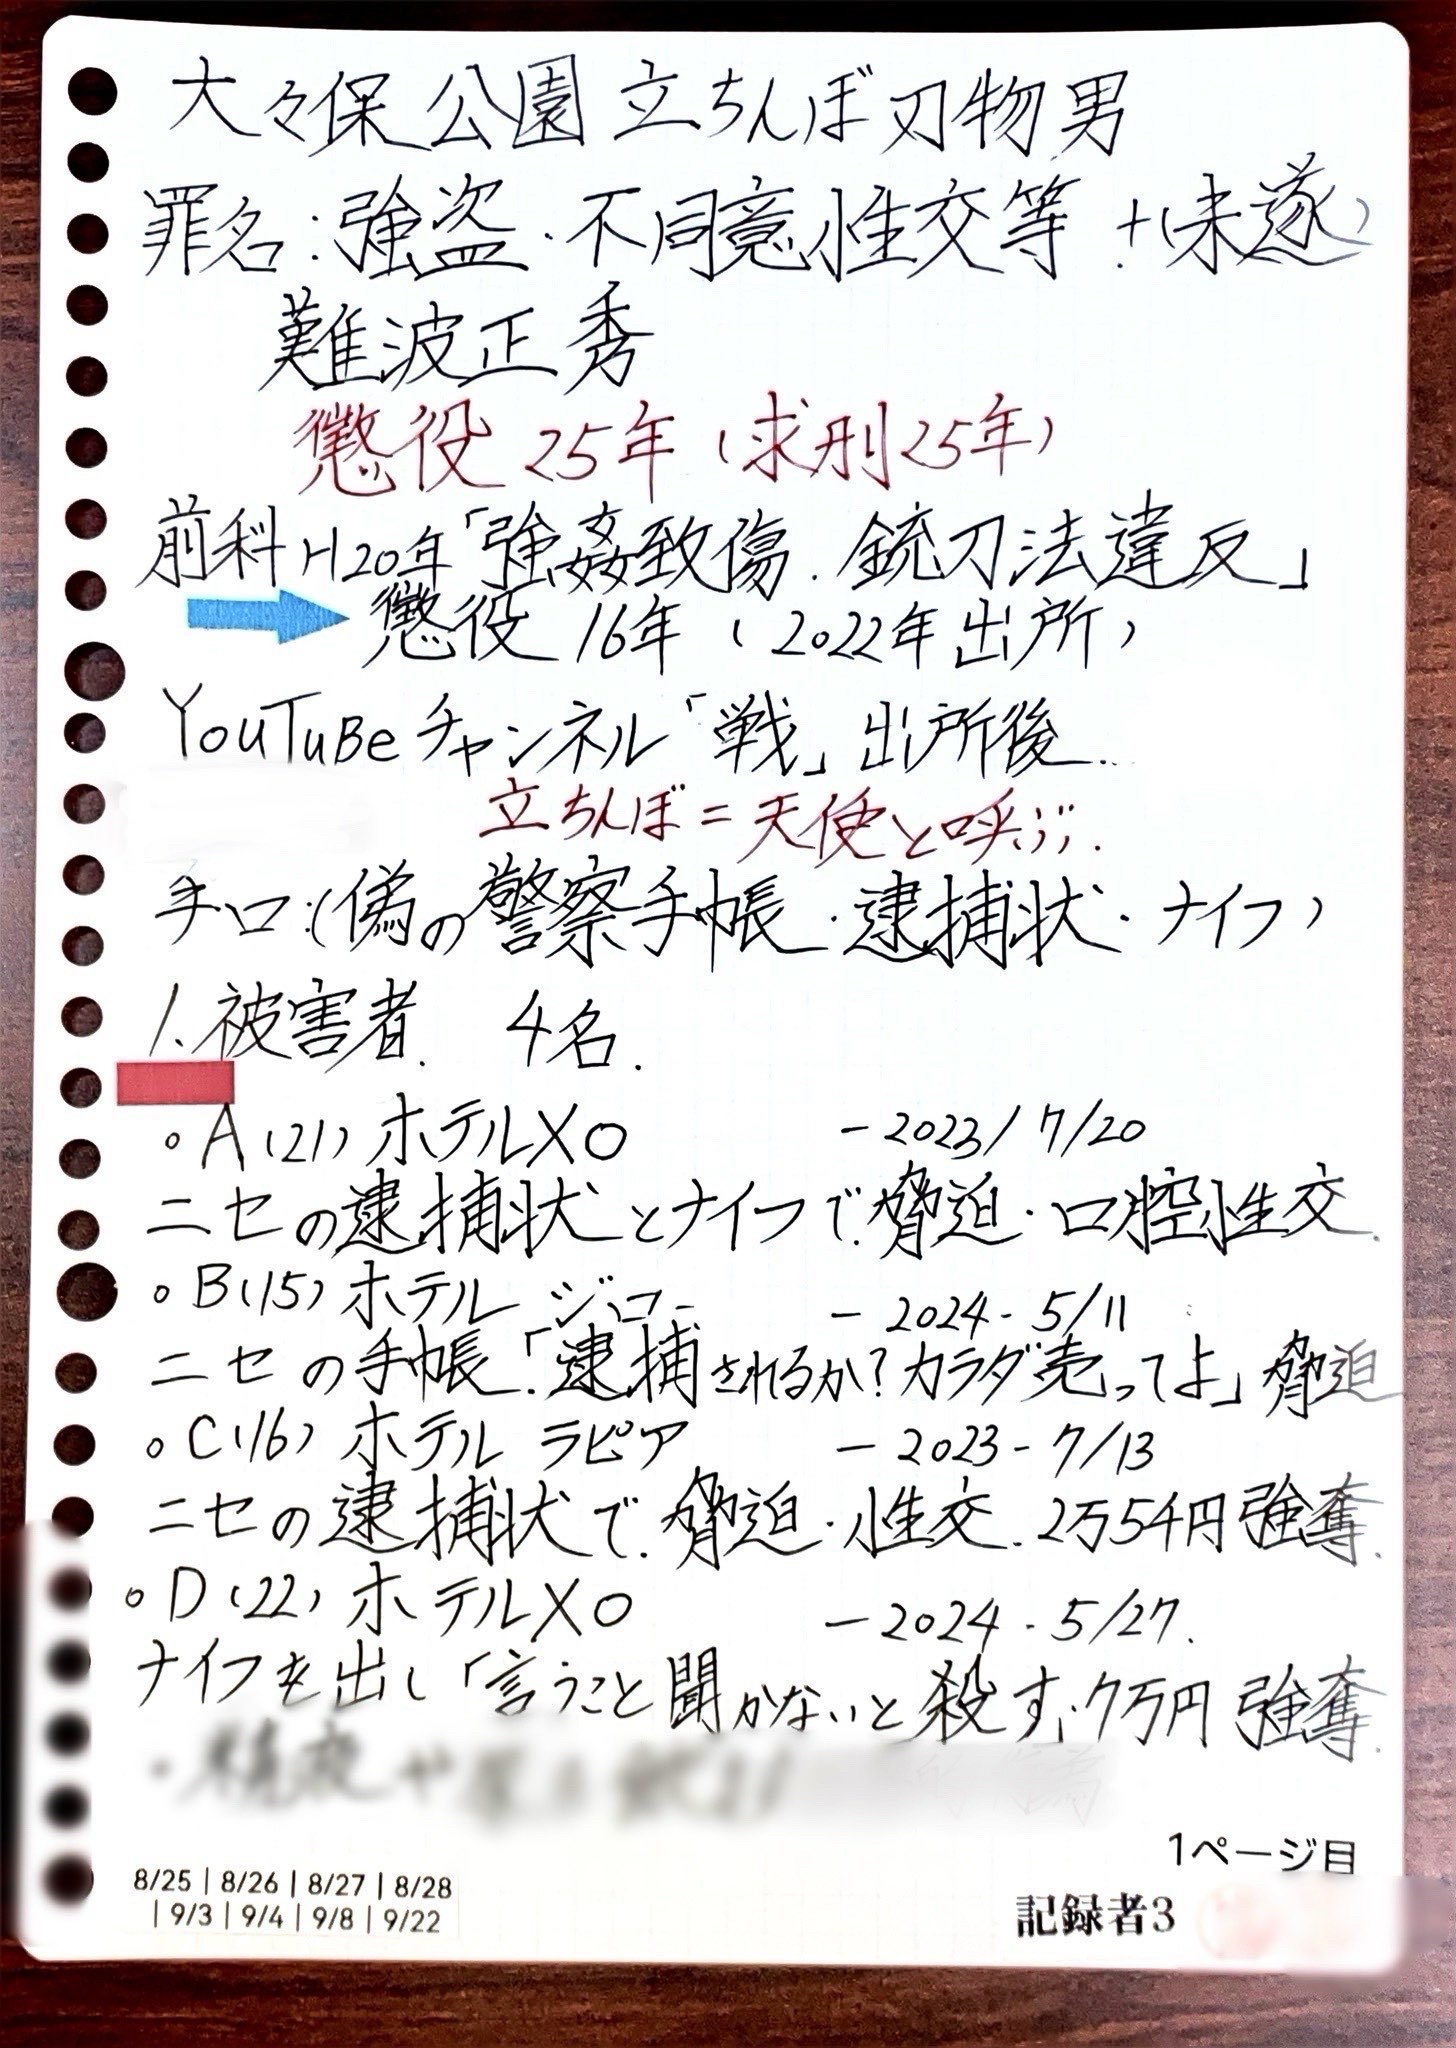 大々保公園 立ちんぼ刃物男
罪名:強盗・不同意性交等 +(未遂)
難波正秀
懲役 25年 (求刑25年)
前科 H20年「強姦致傷.銃刀法違反」
懲役 16年 (2022年出所)
YouTuBeチャンネル「戦」出所後..
立ちんぼ=天使と呼ぶ.
手口:(偽の警察手帳・逮捕状・ナイフ)
1.被害者. 4名.
○A(21) ホテルXO -2023/7/20
ニセの逮捕状とナイフで.脅迫・口腔性交.
○B(15) ホテル ジロー - 2024-5/11
ニセの手帳.「逮捕されるか?カラダ売ってよ」脅迫
○C(16) ホテル ラピア - 2023-7/13
ニセの逮捕状で.脅迫・性交.2万54円強奪.
○D(22) ホテルXO -2024-5/27.
ナイフを出し「言うこと聞かないと殺す.7万円強奪.
1ページ目
8/25 | 8/26 | 8/27 | 8/28
| 9/3 | 9/4 | 9/8 | 9/22
記録者3